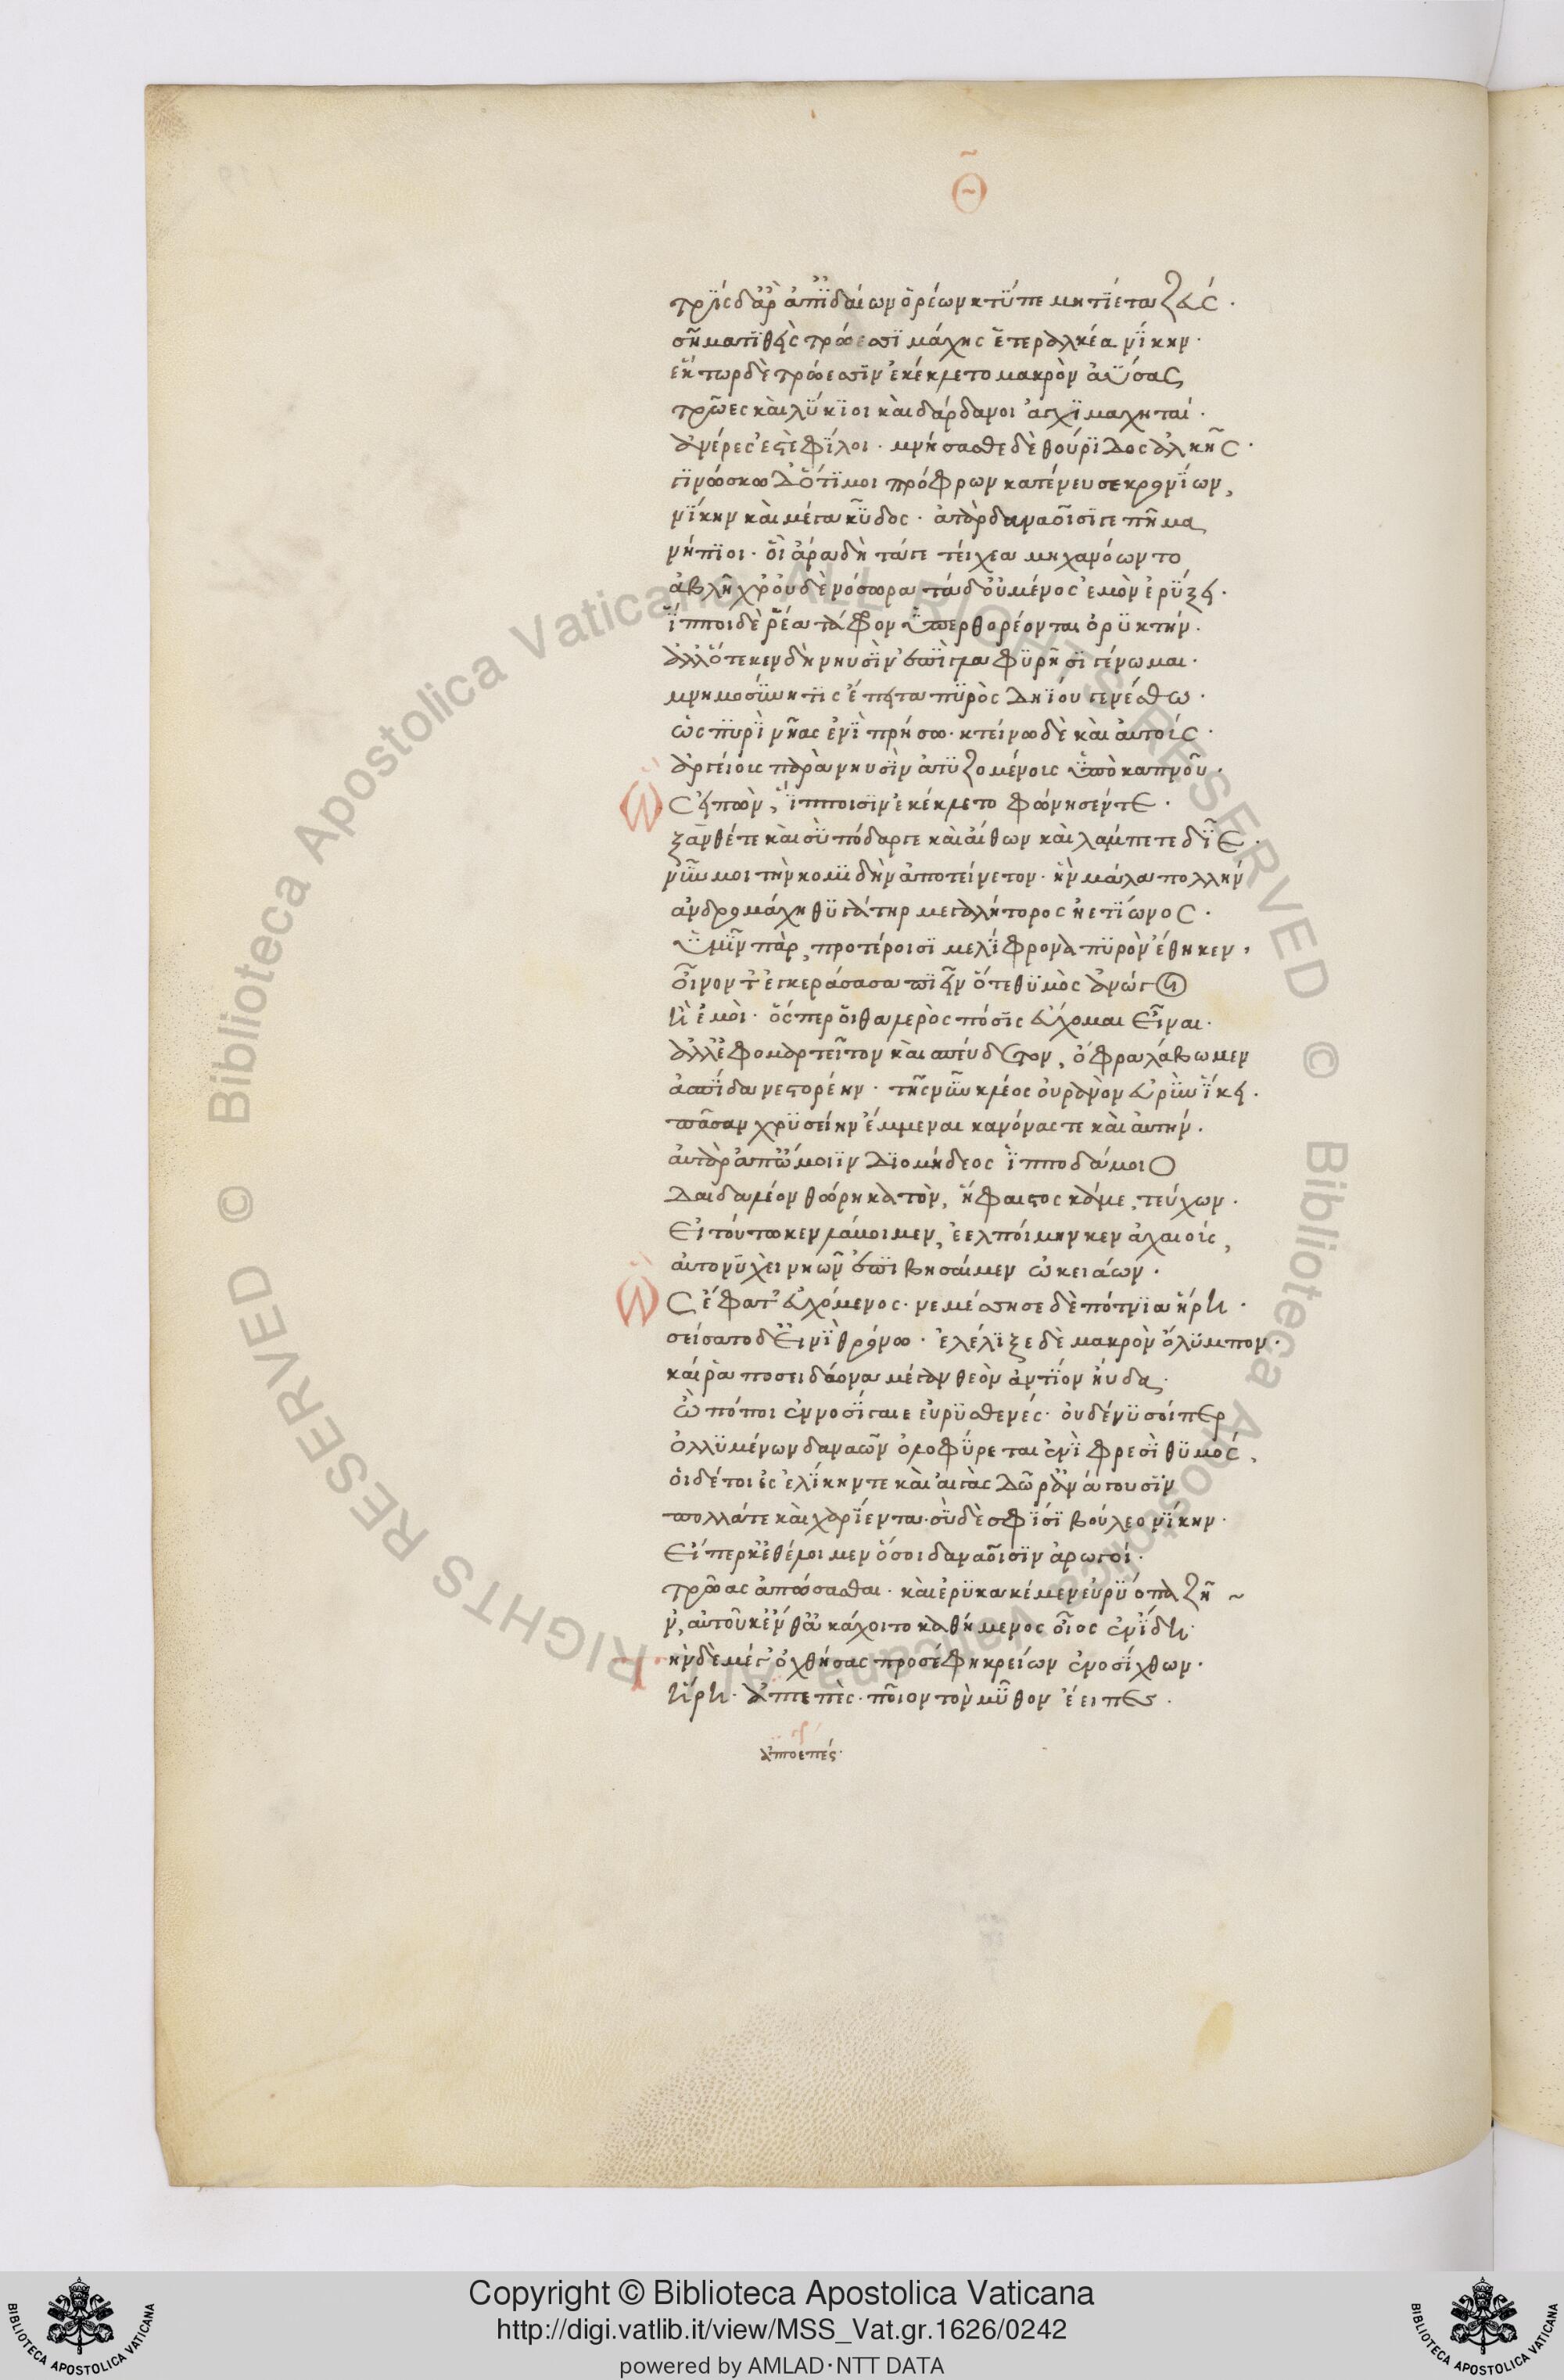 Θ
τρὶς δ' ἄρ' ἀπ' ἰδαίων ὀρέων κτύπε μητίετα ζεύς·
σῆμα τιθεὶς τρώεσσι μάχης ἑτεραλκέα νίκην·
ἕκτωρ δὲ τρώεσσιν ἐκέκλετο μακρὸν ἀΰσας
τρῶες καὶ λύκιοι καὶ δάρδανοι ἀγχιμαχηταί·
ἀνέρες ἐστὲ φίλοι· μνήσασθε δὲ θούριδος ἀλκῆς·
γινώσκω δ' ὅτι μοι πρόφρων κατένευσε κρονίων,
νίκην καὶ μέγα κῦδος· ἀτὰρ δαναοῖσί γε πῆμα
νήπιοι· οἳ ἄρα δὴ τάγε τείχεα μηχανόωντο
ἀβλῆχρ' οὐδὲ νόσωρα τὰ δ' οὐ μένος ἐμὸν ἐρύξει·
ἵπποι δὲ ῥέα τάφρον ὑπερθορέονται ὀρυκτήν·
ἀλλ' ὅτε κεν δὴ νηυσὶν ἐπὶ γλαφυρῇσι γένωμαι·
μνημοσύνη τις ἔπειτα πυρὸς δηίου γενέσθω·
ὡς πυρὶ νῆας ἐνιπρήσω· κτείνω δὲ καὶ αὐτούς·
ἀργείους παρὰ νηυσὶν ἀτυζομένους ὑπὸ καπνοῦ·
Ὣς εἰπὼν, ἵπποισιν ἐκέκλετο φώνησέν τε·
ξάνθέ τε καὶ σὺ πόδαργε καὶ αἴθων καὶ λάμπετε δῖε·
νῦν μοι τὴν κομιδὴν ἀποτείνετον· ἣν μάλα πολλὴν
ἀνδρομάχη θυγάτηρ μεγαλήτορος ἠετίωνος·
ὑμῖν πὰρ, προτέροισι μελίφρονα πυρὸν ἔθηκεν,
οἶνον τ' ἐγκεράσασα πιεῖν ὅτε θυμὸς ἀνώγοι
ἢ ἐμοὶ· ὅς πέρ οἱ θαλερὸς πόσις εὔχομαι εἶναι·
ἀλλ' ἐφομαρτεῖτον καὶ σπεύδετον, ὄφρα λάβωμεν
ἀσπίδα νεστορέην· τῆς νῦν κλέος οὐρανὸν εὐρὺν ἵκει·
πᾶσαν χρυσείην ἔμμεναι κανόνας τε καὶ αὐτήν·
αὐτὰρ ἀπ' ὤμοιιν διομήδεος ἱπποδάμοιο
δαιδαλέον θώρηκα τὸν, ἥφαιστος κάμε, τεύχων·
Εἰ τούτω κεν λάβοιμεν, ἐελποίμην κεν ἀχαιοὺς,
αὐτονυχὶ νηῶν ἐπιβησέμεν ὠκειάων·
Ὣς ἔφατ' εὐχόμενος· νεμέσησε δὲ πότνια ἥρη·
σείσατο δ' εἰνὶ θρόνω· ἐλέλιξε δὲ μακρὸν ὄλυμπον·
καί ῥα ποσειδάονα μέγαν θεὸν ἀντίον ηὔδα·
ὢ πόποι ἐννοσίγαιε εὐρυσθενές· οὐδέ νυ σοί περ
ὀλλυμένων δαναῶν ὀλοφύρεται ἐνὶ φρεσὶ θυμός,
οἱ δέ τοι εἰς ἑλίκην τε καὶ αἰγὰς δῶρ' ἀνάγουσιν
πολλά τε καὶ χαρίεντα· σὺ δὲ σφίσι βούλεο νίκην·
Εἴπερ κ' ἐθέλοιμεν ὅσοι δαναοῖσιν ἀρωγοί·
τρῶας ἀπώσασθαι· καὶ ἐρυκακέμεν εὐρύοπα ζῆ~
ν, αὐτοῦ κ' ἔνθ' ἀκάχοιτο καθήμενος οἶος ἐν ἴδη·
Τὴν δὲ μέγ' ὀχθήσας προσέφη κρείων ἐνοσίχθων·
ἥρη· ἀπτεπὲς· ποῖον τὸν μῦθον ἔειπες·
ἀπτοεπές·
Copyright © Biblioteca Apostolica Vaticana
http://digi.vatlib.it/view/MSS_Vat.gr.1626/0242
powered by AMLAD·NTT DATA